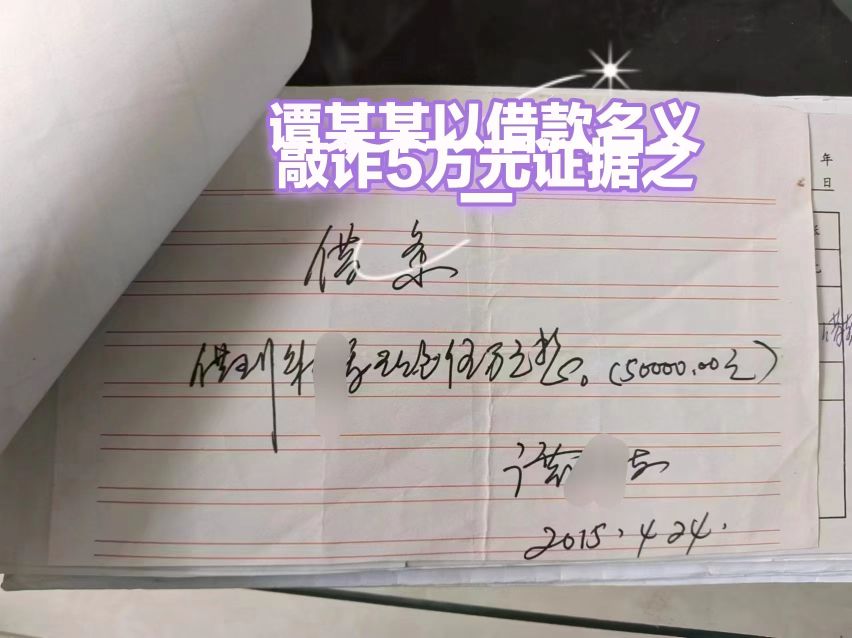 谭某某以借款名义
敲诈5万元证据之
一
年
日
借条
借到 现金伍万元整。(50000.00元)
2015.4.24.